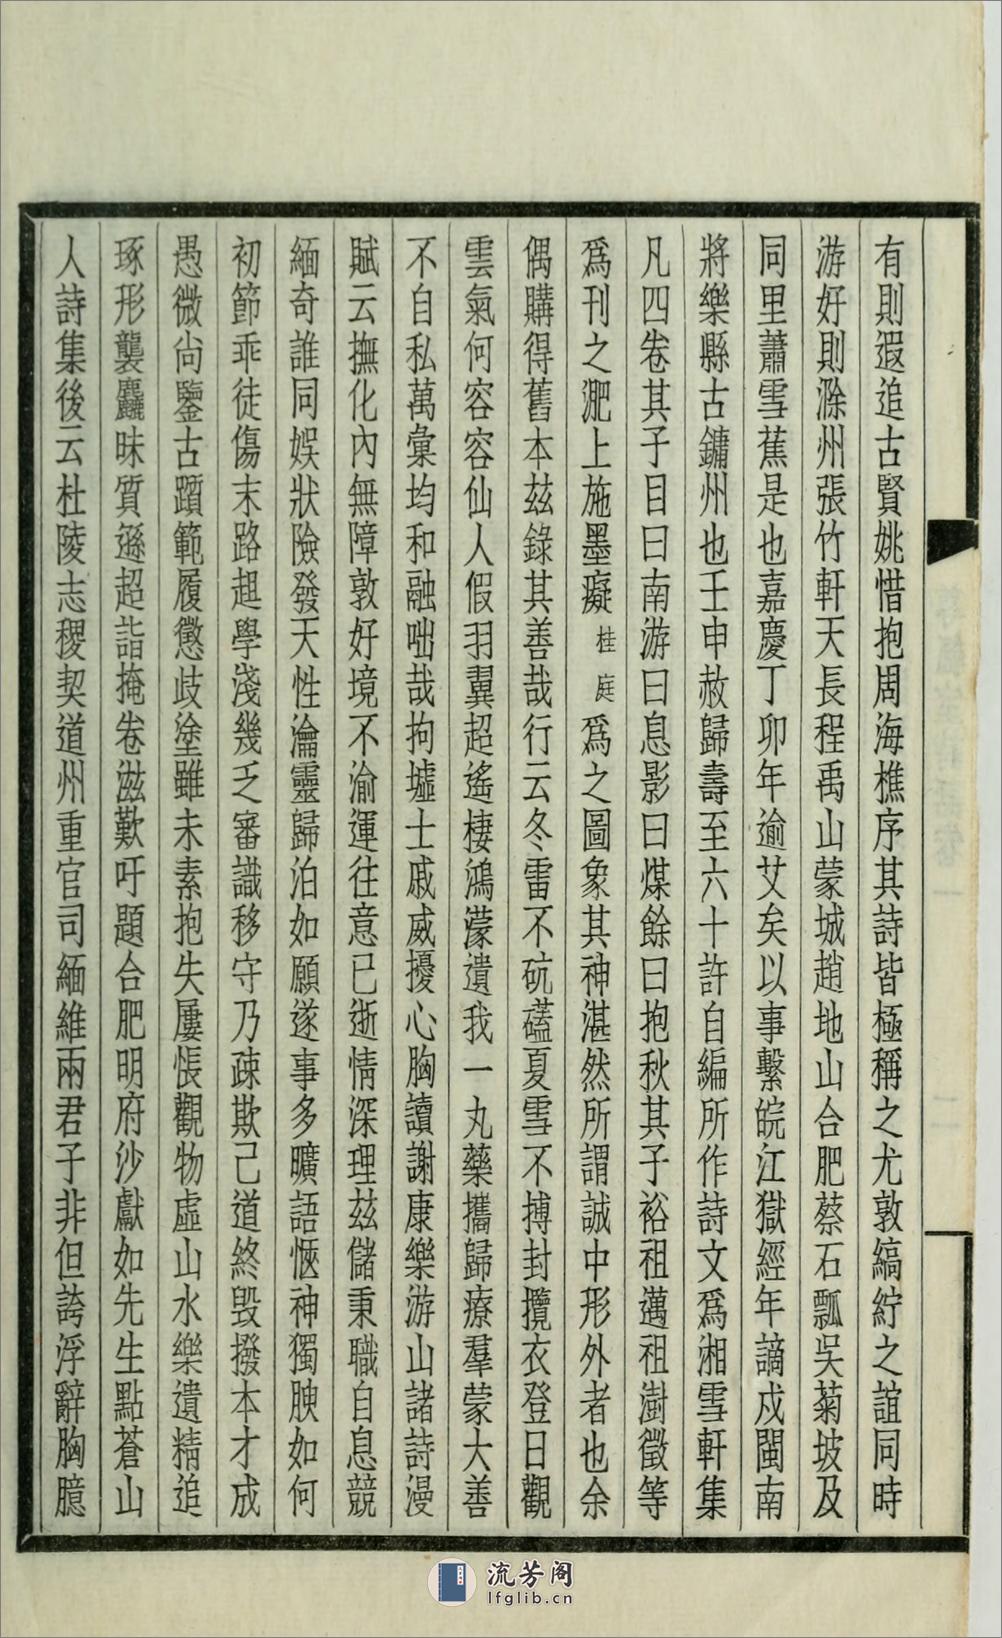 有則遐追古賢姚惜抱周海樵序其詩皆極稱之尤敦縞紵之誼同時
游好則滁州張竹軒天長程禹山蒙城趙地山合肥蔡石瓢吳菊坡及
同里蕭雪蕉是也嘉慶丁卯年逾艾矣以事繫皖江獄經年謫戍閩南
將樂縣古鏞州也壬申赦歸壽至六十許自編所作詩文爲湘雪軒集
凡四卷其子目曰南游曰息影曰煤餘曰抱秋其子裕祖邁祖澍徵等
爲刊之淝上施墨癡桂庭爲之圖象其神湛然所謂誠中形外者也余
偶購得舊本玆錄其善哉行云冬雷不砊礚夏雪不搏封攬衣登日觀
雲氣何容容仙人假羽翼超遙棲鴻濛遺我一丸藥攜歸療羣蒙大善
不自私萬彙均和融咄哉拘墟士戚戚擾心胸讀謝康樂游山諸詩漫
賦云撫化內無障敦好境不渝運往意已逝情深理玆儲秉職自息競
緬奇誰同娛狀險發天性瀹靈歸泊如願遂事多曠語愜神獨腴如何
初節乖徒傷末路趄學淺幾乏審識移守乃疎欺己道終毀撥本才成
愚微尚鑒古躓範履懲歧塗雖未素抱失屢悵觀物虛山水樂遺精追
琢形襲麤昧質遜超詣掩卷滋歎吁題合肥明府沙獻如先生點蒼山
人詩集後云杜陵志稷契道州重官司緬維兩君子非但誇浮辭胸臆
流芳阁
lfglib.cn